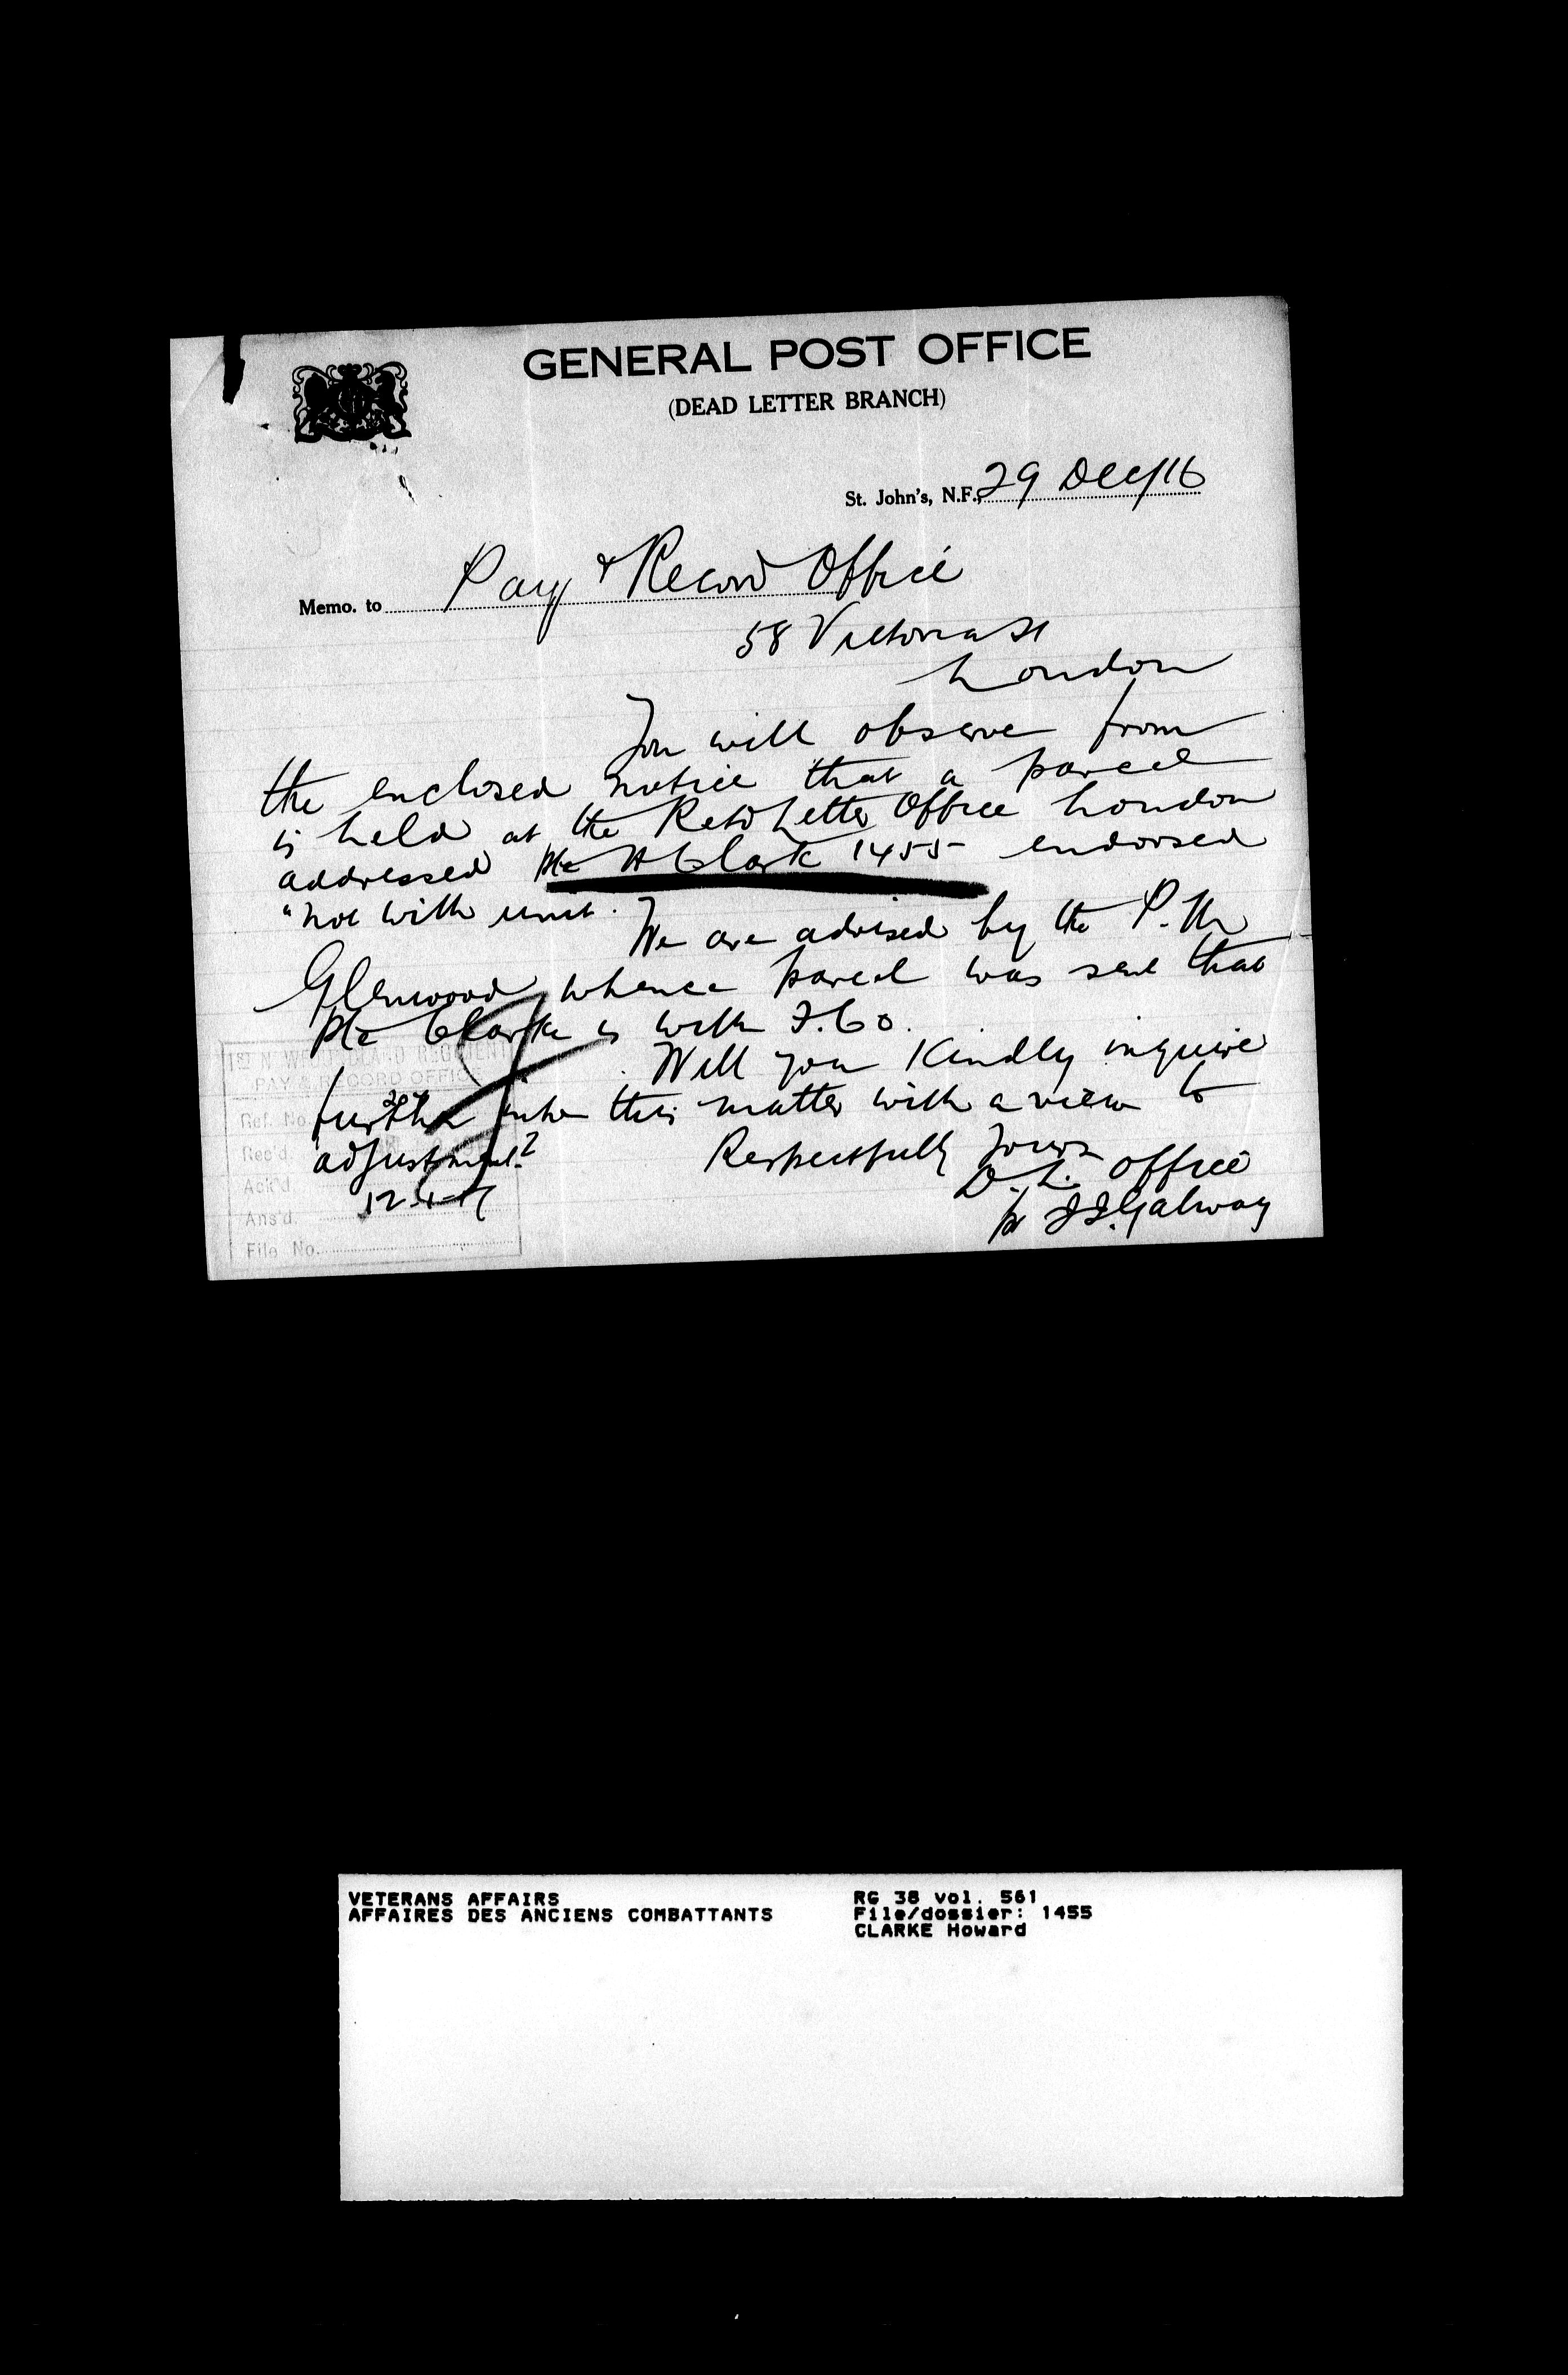 GENERAL POST OFFICE
(DEAD LETTER BRANCH)
St. John's, N.F., 29 Dec/16
Memo. to Pay & Record Office
58 Victoria St
London
You will observe from
the enclosed notice that a parcel
is held at the Retd Letter Office London
addressed Pte H Clark 1455 endorsed
"not with unit.
We are advised by the P.M
Glenwood whence parcel was sent that
Pte Clarke is with F. Co.
Will you Kindly inquire
further into this matter with a view to
adjustment?
Respectfully Yours
D. L. Office
J.J. Galway
1ST NEWFOUNDLAND REGIMENT
PAY & RECORD OFFICE
Ref. No.
Rec'd.
Ack'd.
12-1-17
Ans'd.
File No.
VETERANS AFFAIRS
AFFAIRES DES ANCIENS COMBATTANTS
RG 38 vol. 561
File/dossier: 1455
CLARKE Howard